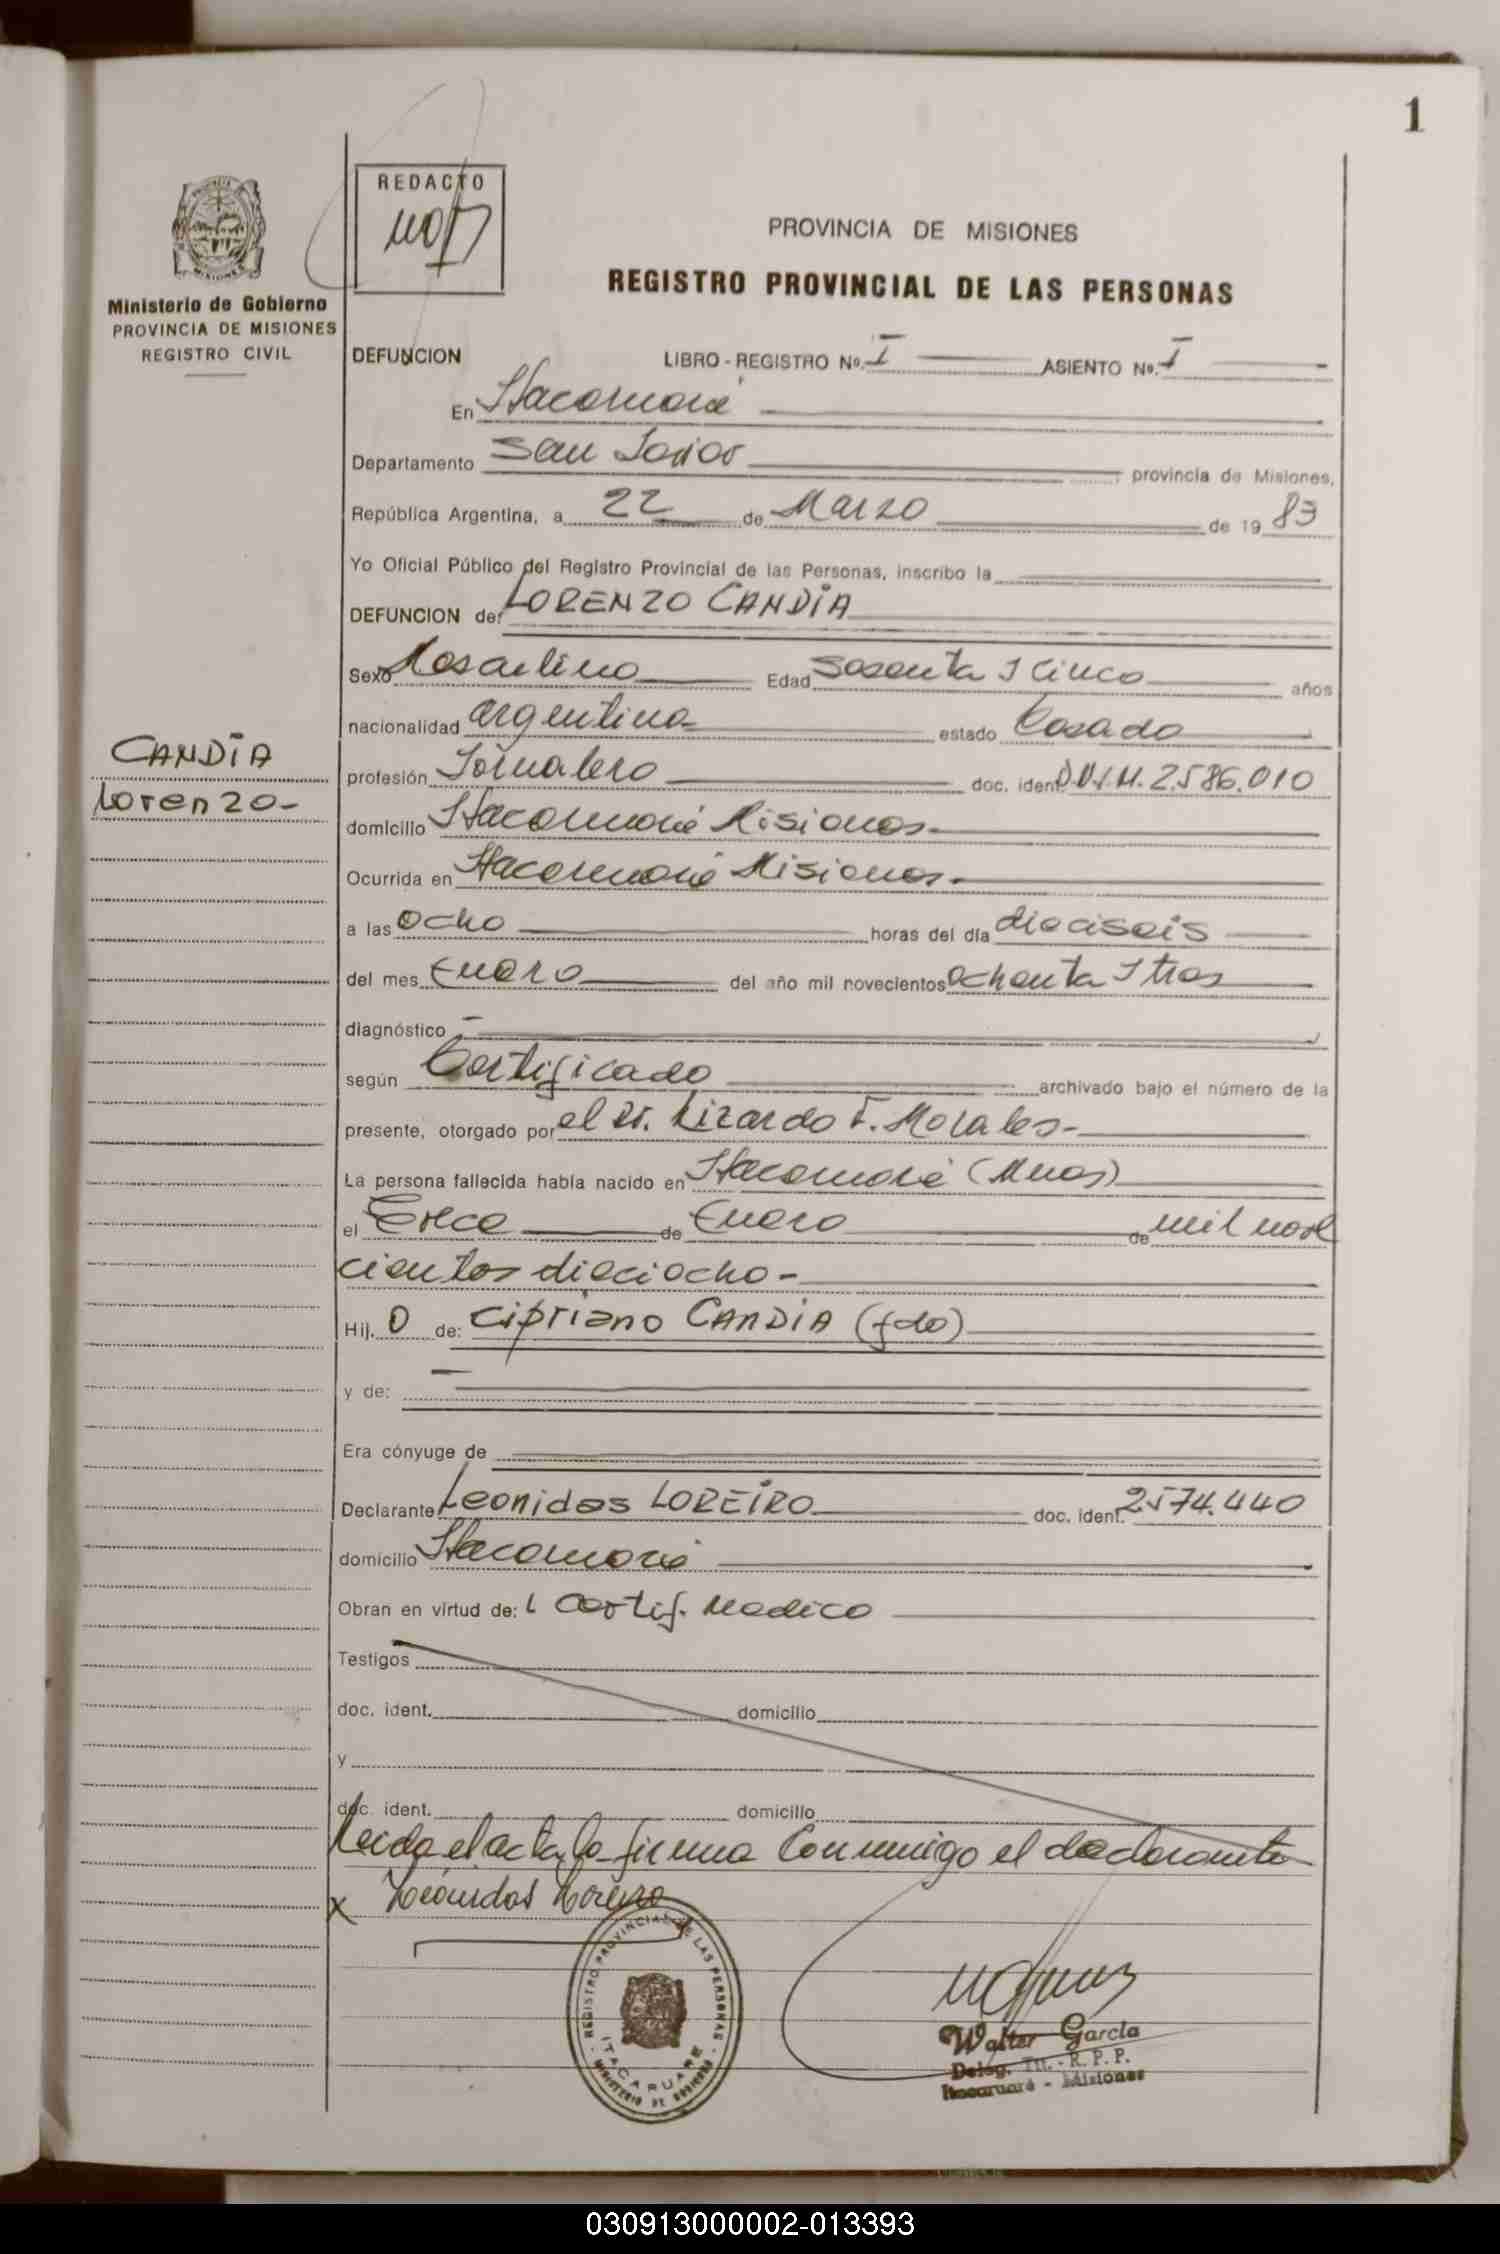 1
REDACTO
PROVINCIA DE MISIONES
REGISTRO PROVINCIAL DE LAS PERSONAS
Ministerio de Gobierno
PROVINCIA DE MISIONES
REGISTRO CIVIL
DEFUNCION LIBRO - REGISTRO Nº. I ASIENTO Nº. I
En Itacaruaré
Departamento San Javier provincia de Misiones,
República Argentina, a 22 de Marzo de 19 83
Yo Oficial Público del Registro Provincial de las Personas, inscribo la
DEFUNCION de: LORENZO CANDIA
Sexo Masculino Edad Sesenta y Cinco años
nacionalidad argentina estado Casado
CANDIA
Lorenzo-
profesión Jornalero doc. ident. D.N.I.M. 2.586.010
domicilio Itacaruaré Misiones-
Ocurrida en Itacaruaré Misiones-
a las ocho horas del día dieciseis
del mes Enero del año mil novecientos ochenta y tres
diagnóstico -
según Certificado archivado bajo el número de la
presente, otorgado por el Dr. Lizardo F. Morales-
La persona fallecida había nacido en Itacaruaré (Mnes)
el Trece de Enero de mil nove
cientos dieciocho-
Hij. O de: Cipriano CANDIA (fdo)
y de: -
Era cónyuge de
Declarante Leonidas LOREIRO doc. ident. 2.574.440
domicilio Itacaruaré
Obran en virtud de: 1 Certif. Medico
Testigos
doc. ident. domicilio
y
doc. ident. domicilio
Leida el acta la firma Conmigo el declarante
x Leonidas Loreiro
REGISTRO PROVINCIAL DE LAS PERSONAS
ITACARUARE
MINISTERIO DE GOBIERNO
Walter García
Deleg. Tit. - R. P. P.
Itacaruaré - Misiones
030913000002-013393